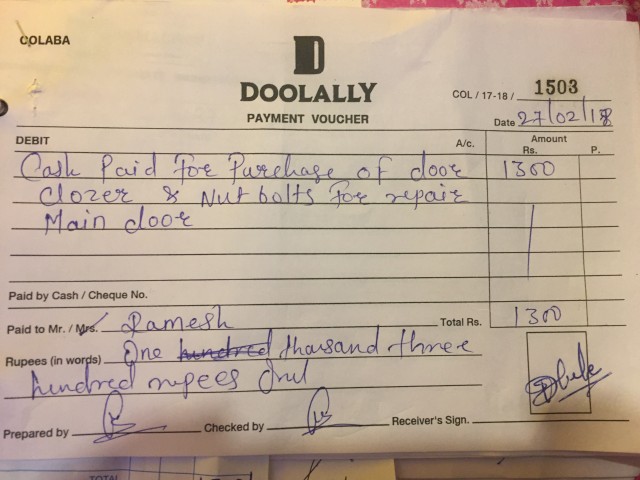 COLABA
D
DOOLALLY
COL / 17-18 / 1503
PAYMENT VOUCHER
Date 27/02/18
DEBIT A/c. Amount
Rs. P.
Cash Paid For Purchase of door 1300
Clozer & Nut bolts For repair
Main door
Paid by Cash / Cheque No.
Paid to Mr. / Mrs. Ramesh Total Rs. 1300
Rupees (in words) One hundred thousand three
hundred rupees Onl
Prepared by Checked by Receiver's Sign.
TOTAL